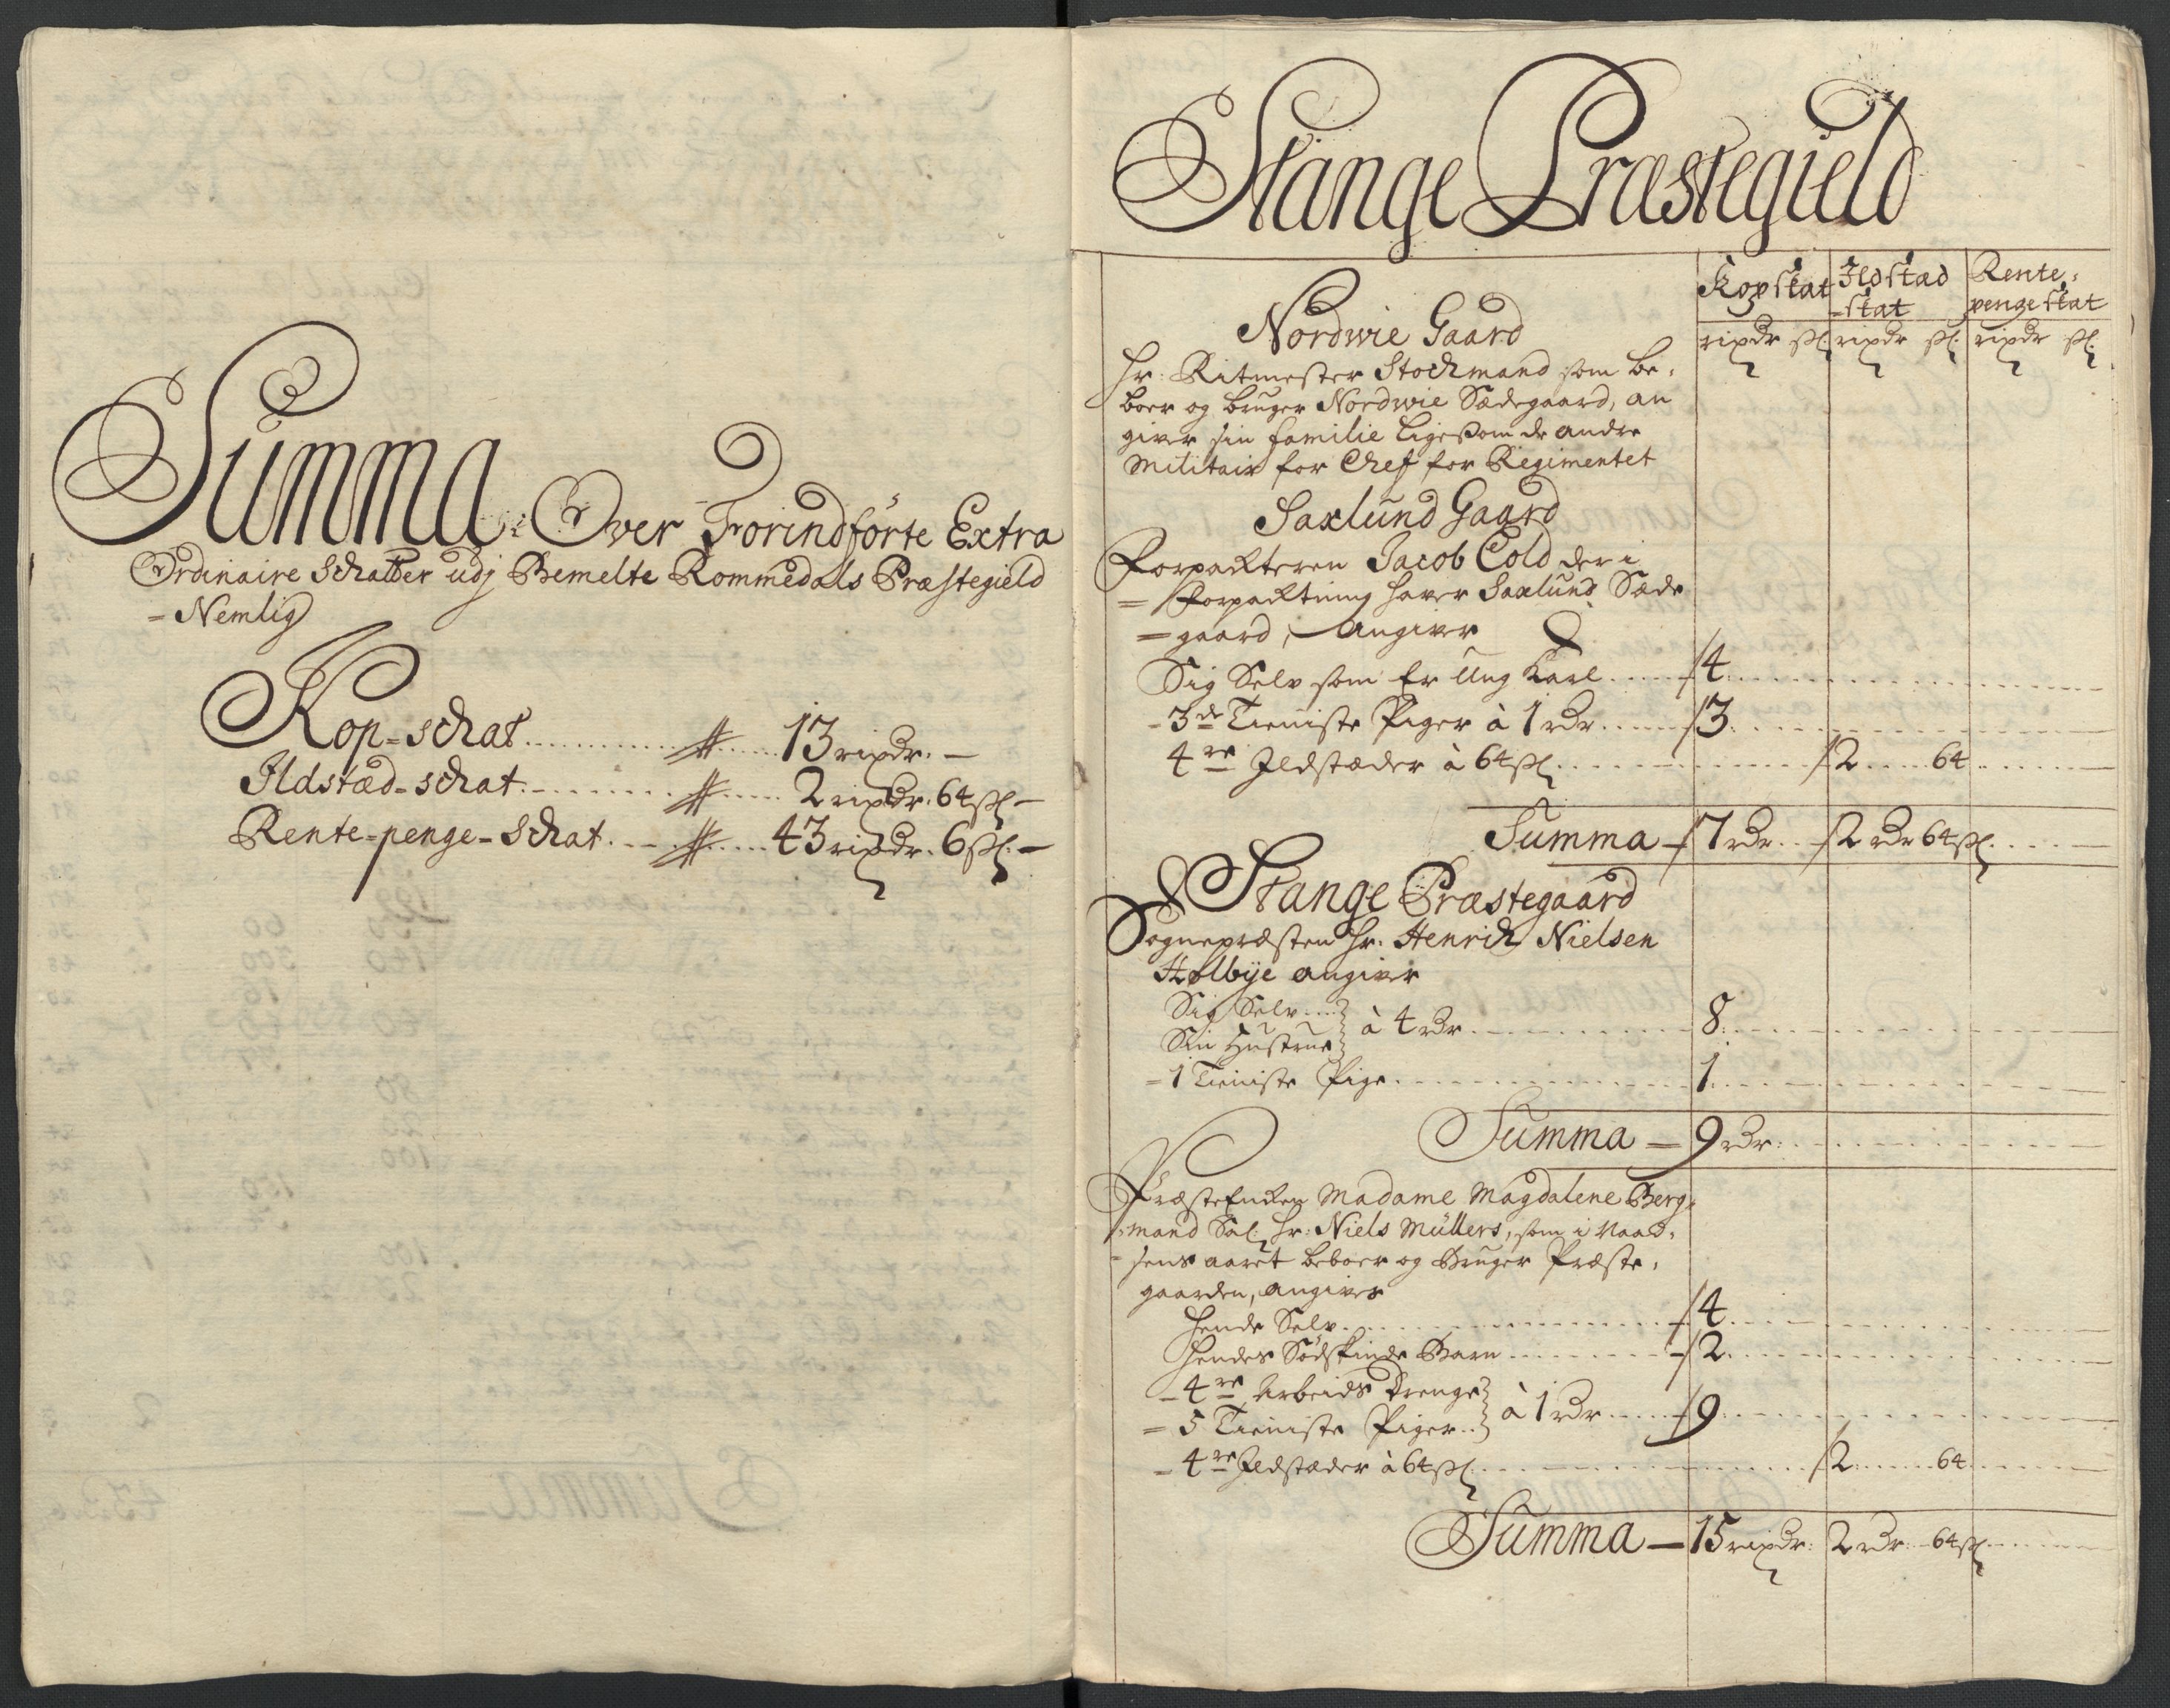 Summa. Over Forindførte Extra
Ordinaire Schatter udj Bemelte Rommedals Præstegield
= Nemlig
Kop=schat 13 rixdr. —
Ildstæd=schat 2 rixdr. 64 ß —
Rente=penge=Schat 43 rixdr. 6 ß —
Stange Præstegield
Kopskat Ildstæd Rente=
=skat pengeskat
rixdr ß rixdr ß rixdr ß
Nordwie Gaard
Hr: Ritmester Stockmand som be=
boer og bruger Nordwie Sædegaard, an
giver sin familie ligesom de andre
Militair for Chef for Regimentet
Saxlund Gaard
Forpackteren Jacob Cold der i
= Forpacktning haver Saxlund Sæde
= gaard, Angiver
Sig Selv som Er Ung Karl 4
- 3de Tieniste Piger à 1 rdr 3
4re Ildstæder à 64 ß 2 64
Summa 7 rdr 2 rdr 64 ß
Stange Præstegaard
Sognepræsten Hr. Henrich Nielsen
Holbye angiver
Sig Selv
Sin Hustrue à 4 rdr 8
= 1 Tieniste Pige 1
Summa = 9 rdr
PræsteEncken Madame Magdalene Berg=
=mand Sal. Hr: Niels Müllers, som i Naad=
sens aaret beboer og Bruger Præste=
gaarden, angiver
Hende Selv 4
Hendes Sødskinde Barn 2
- 4re Arbeids Drenge
= 5 Tieniste Piger à 1 rdr 9
- 4re Ildstæder à 64 ß 2 64
Summa — 15 rixdr. 2 rdr 64 ß